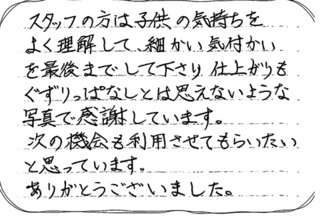 スタッフの方は子供の気持ちを
よく理解して、細かい気付かい
を最後までして下さり、仕上がりも
ぐずりっぱなしとは思えないような
写真で感謝しています。
次の機会も利用させてもらいたい
と思っています。
ありがとうございました。